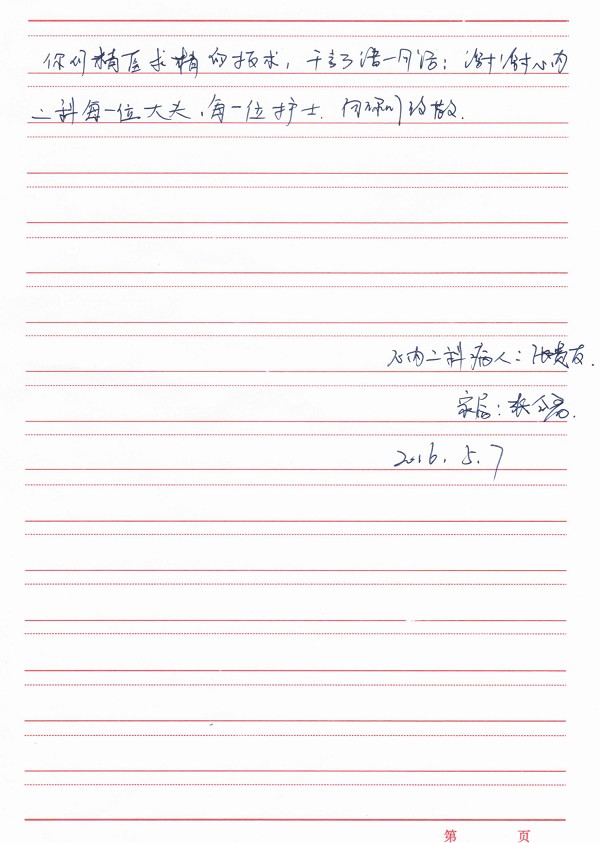 你们精医求精的技术，千言万语一句话：谢谢心内
二科每一位大夫、每一位护士. 向你们致敬.
心内二科病人：张贵友.
家属：张
2016.5.7
第 页